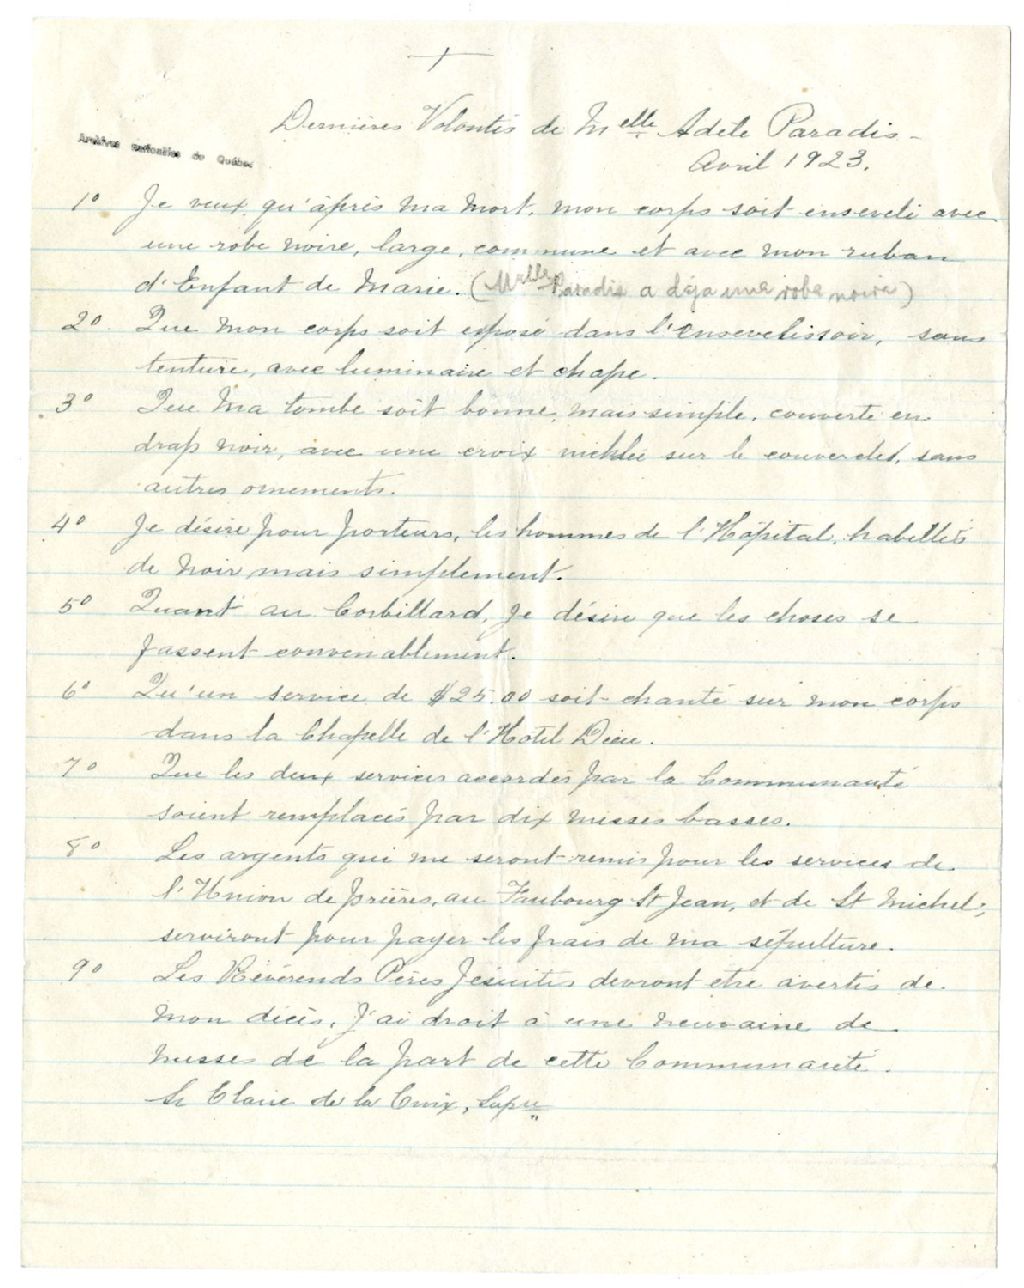 Dernières Volontés de Melle Adele Paradis -
Archives nationales de Québec
Avril 1923.
1° Je veux qu'après ma mort, mon corps soit enseveli avec
une robe noire, large, commune et avec mon ruban
d'Enfant de Marie. (Melle Paradis a déja une robe noire)
2° Que mon corps soit exposé dans l'ensevelissoir, sans
tenture, avec luminaire et chape.
3° Que ma tombe soit bonne, mais simple, couverte en
drap noir, avec une croix nichlée sur le couvercle, sans
autres ornements.
4° Je désire pour porteurs, les hommes de l'Hôpital, habillés
de noir, mais simplement.
5° Quant au Corbillard, je désire que les choses se
fassent convenablement.
6° Qu'un service de $25.00 soit chanté sur mon corps
dans la Chapelle de l'Hotel Dieu.
7° Que les deux services accordés par la Communauté
soient remplacés par dix messes basses.
8° Les argents qui me seront remis pour les services de
l'Union de prières, au Faubourg St Jean, et de St Michel,
serviront pour payer les frais de ma sépulture.
9° Les Révérends Pères Jésuites devront etre avertis de
mon décès, j'ai droit à une neuvaine de
messes de la part de cette Communauté.
Sr Claire de la Croix, Supre